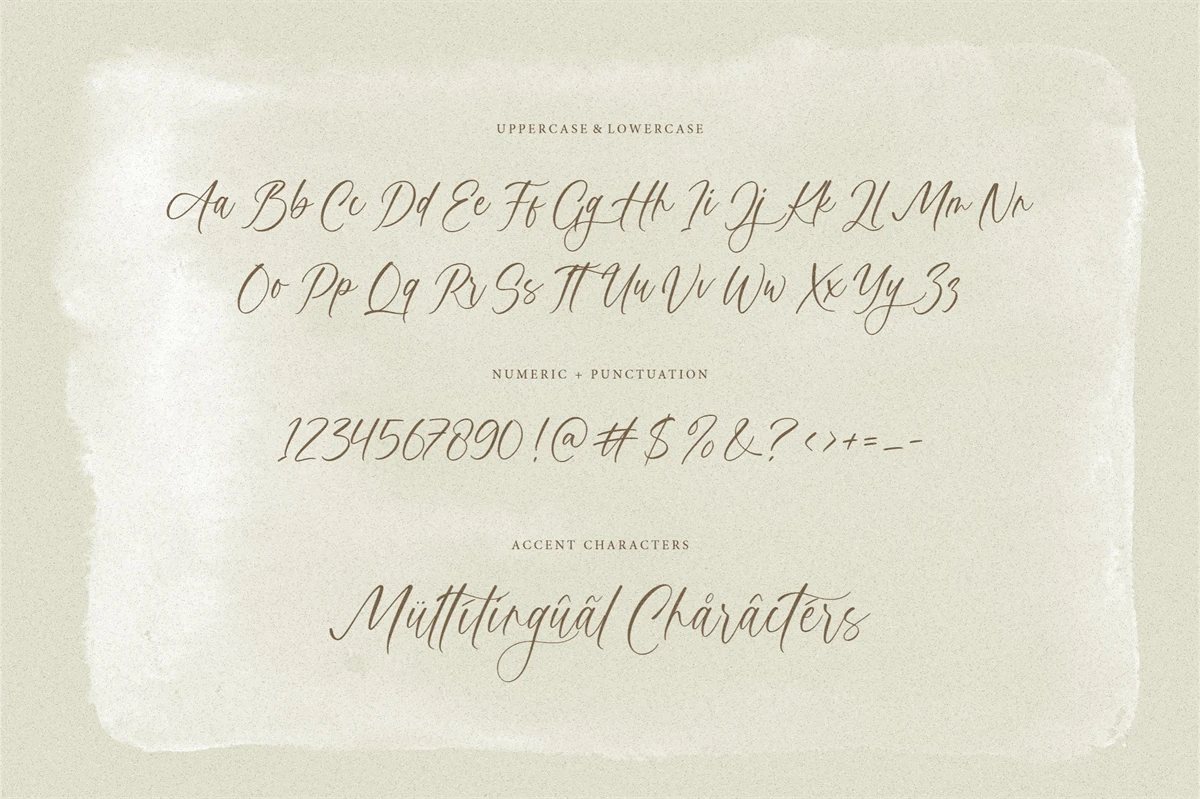 UPPERCASE & LOWERCASE
Aa Bb Cc Dd Ee Ff Gg Hh Ii Jj Kk Ll Mm Nn
Oo Pp Qq Rr Ss Tt Uu Vv Ww Xx Yy Zz
NUMERIC + PUNCTUATION
1234567890!@#$%&?<>+=_-
ACCENT CHARACTERS
Müttítíngûãl Chåråctérs